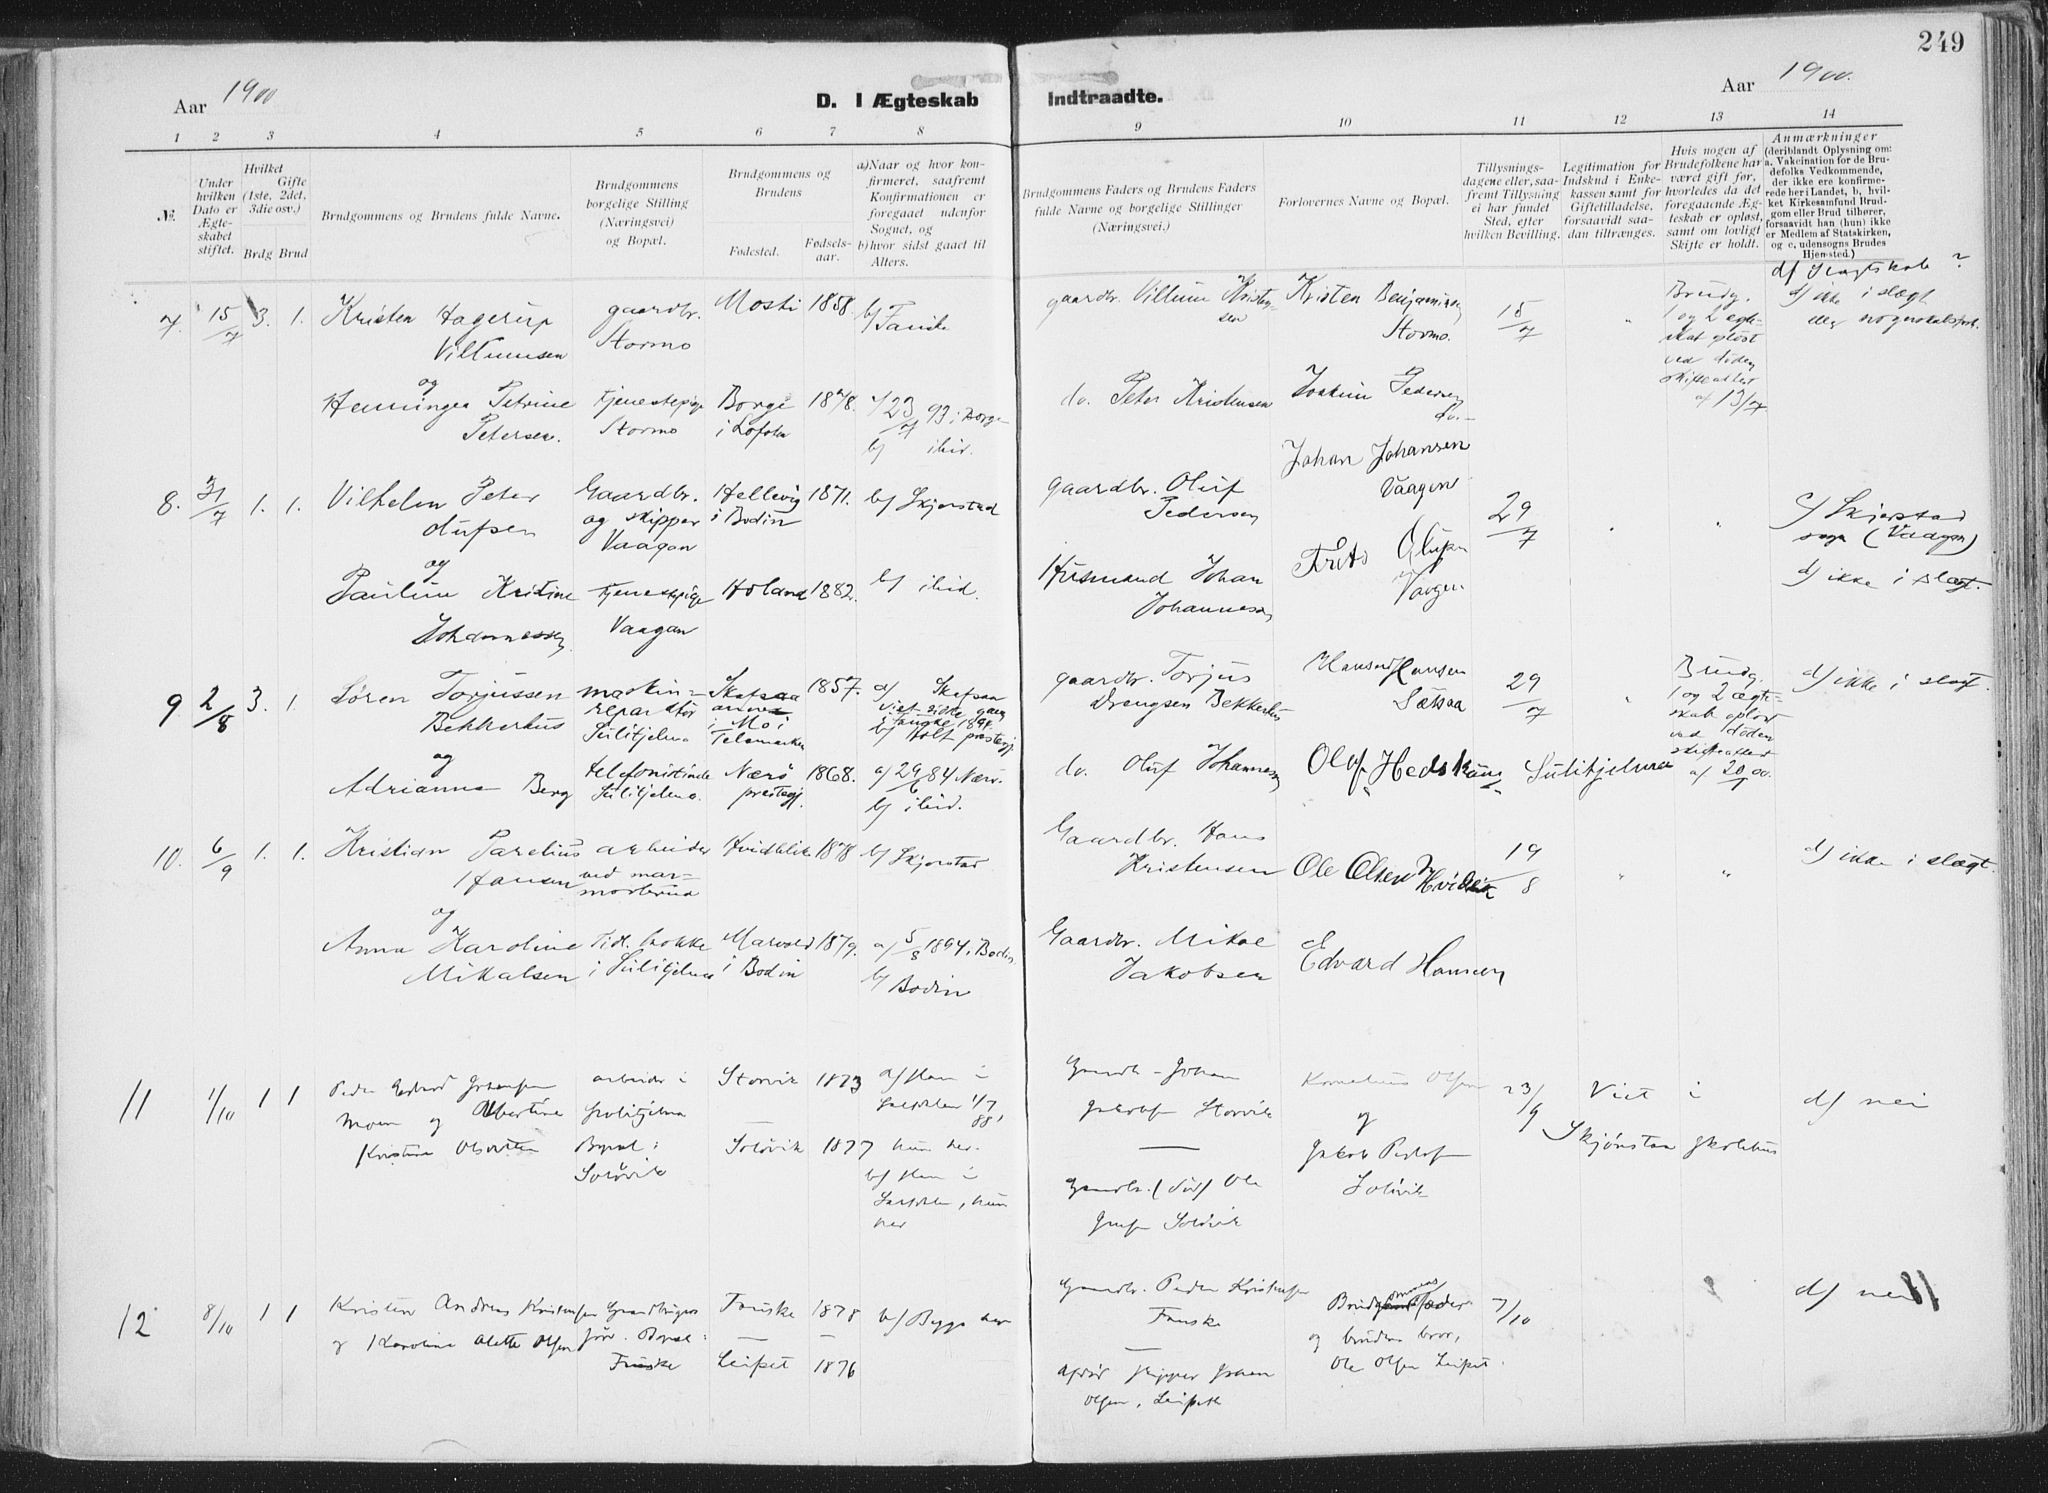 249
Aar 1900
D. I Ægteskab Indtraadte.
Aar 1900.
1 2 3 4 5 6 7 8 9 10 11 12 13 14
№.
Under hvilken Dato er Ægteskabet stiftet.
Hvilket Gifte (1ste, 2det, 3die osv.)
Brdg Brud
Brudgommens og Brudens fulde Navne.
Brudgommens borgelige Stilling (Næringsvei) og Bopæl.
Brudgommens og Brudens
Fødested.
Fødsels-aar.
a) Naar og hvor konfirmeret, saafremt Konfirmationen er foregaaet udenfor Sognet, og
b) hvor sidst gaaet til Alters.
Brudgommens Faders og Brudens Faders fulde Navne og borgelige Stillinger (Næringsvei.)
Forlovernes Navne og Bopæl.
Tillysnings-dagene eller, saafremt Tillysning ei har fundet Sted, efter hvilken Bevilling.
Legitimation for Indskud i Enkekassen samt for Giftetilladelse, forsaavidt saadan tiltrænges.
Hvis nogen af Brudefolkene har været gift før, hvorledes da det foregaaende Ægteskab er opløst, samt om lovligt Skifte er holdt.
Anmærkninger
(deriblandt Oplysning om: a. Vakcination for de Brudefolks Vedkommende, der ikke ere konfirmerede her i Landet, b, hvilket Kirkesamfund Brudgom eller Brud tilhører, forsaavidt han (hun) ikke er Medlem af Statskirken, og c, udensogns Brudes Hjemsted.)
7. 15/7 3. 1. Kristen Hagerup
Villumsen
og
Henningea Petrine
Petersen.
gaardbr.
Stormo
Tjenestepige
Stormo
Mosti 1858.
Borge 1878.
i Lofoten
b/ Fauske
a/ 23/7 93 i Borge
b/ ibid.
gaardbr. Villum Kristensen
do. Peter Kristensen
Kristen Benjaminsen
Stormo.
Joakim Pedersen
do.
15/7
Brudg.
1 og 2 ægteskab opløst
ved døden
skifteattest
af 13/7
d/ Slægtskab?
d/ ikke i slægt
8. 31/7 1. 1. Vilhelm Peter
Olufsen
og
Pauline Kristine
Johannessen
Gaardbr.
og skipper
Vaagan
Tjenestepige
Vaagan
Hellevig 1871.
i Bodin
1882.
b/ Skjerstad
b/ ibid.
gaardbr. Oluf
Pedersen
Husmand Johan
Johannessen
Johan Johansen
Vaagen
Olufsen
Vaagen
29/7
c/ Skjerstad
sogn (Vaagan)
d/ ikke i slægt.
9 2/8 3. 1. Søren Torjussen
Bekkerhus
og
Adrianna Berg
maskin-
reparatør
Sulitjelma
telefonistinde
Sulitjelma.
1857.
i Mo i
Telemarken
Nærø 1868.
prestegj.
a/ 29/6 84 Nærø.
b/ ibid.
gaardbr. Torjus
Drengsen Bekkerhus
do. Oluf Johannesen
Hansen
Olof Hedström, Sulitjelma
29/7
Brudg.
1 og 2 ægteskab opløst
ved døden
skifteattest
d/ ikke i slægt.
10. 6/9 1. 1. Kristian Parelius
Hansen
og
Anna Karoline
Mikalsen
arbeider
ved mar-
morbrud
Tidl. kokke
i Sulitjelma
Hvidblik 1878
1879.
i Bodin
b/ Skjerstad
a/ 5/8 1894, Bodin
b/ Bodin
Gaardbr. Hans
Kristensen
Gaardbr. Mikal
Jakobsen
Ole Olsen Hvidblik
Edvard Hansen
19/8
d/ ikke i slægt.
11 1/10 1 1 Peder Johansen
Moen og Albertine
Kristine
arbeider i
Sulitjelma
Bopæl:
Soløvik
Storvik 1873
Solvik 1877
a/ Han i
Saltdalen 1/7 88,
hun her.
b/ Han i
Saltdalen, hun
her
Gaardbr. Johan
Jakobsen Storvik
Gaardbr. (død) Ole
Solvik
Kornelius Olsen
og
Jakob
Solvik
23/9
Viet i
Skjønstaa skolehus
d/ nei
12 8/10 1 1 Kristen Andreas Kristensen
og Karoline Olette Olsen
Gaardbruger
Bopæl:
Fauske
Fauske 1878
Leifset 1876
b/ Begge her
Gaardbr. Peder Kristensen
Fauske
skipper Johan
Olsen, Leifset
og brudens bror,
Ole Olsen Leifset.
7/10
d/ nei